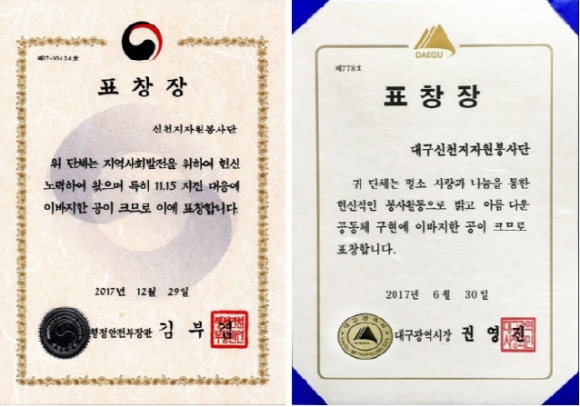 제17-10434호
표창장
신천지자원봉사단
위 단체는 지역사회발전을 위하여 헌신
노력하여 왔으며 특히 11.15 지진 대응에
이바지한 공이 크므로 이에 표창합니다.
2017년 12월 29일
행정안전부장관 김부겸
DAEGU
제778호
표창장
대구신천지자원봉사단
귀 단체는 평소 사랑과 나눔을 통한
헌신적인 봉사활동으로 밝고 아름다운
공동체 구현에 이바지한 공이 크므로
표창합니다.
2017년 6월 30일
대구광역시장 권영진